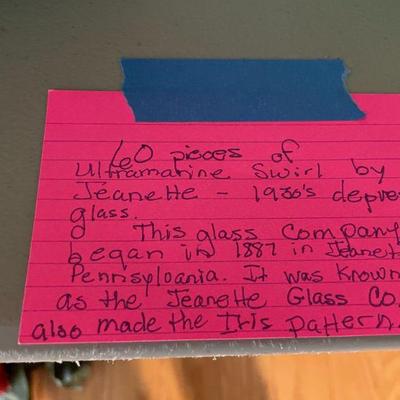 60 pieces of
Ultramarine Swirl by
Jeanette - 1930's depre
glass.
This glass Company
began in 1887 in Jeanet
Pennsylvania. It was known
as the Jeanette Glass Co.
also made the Iris pattern.